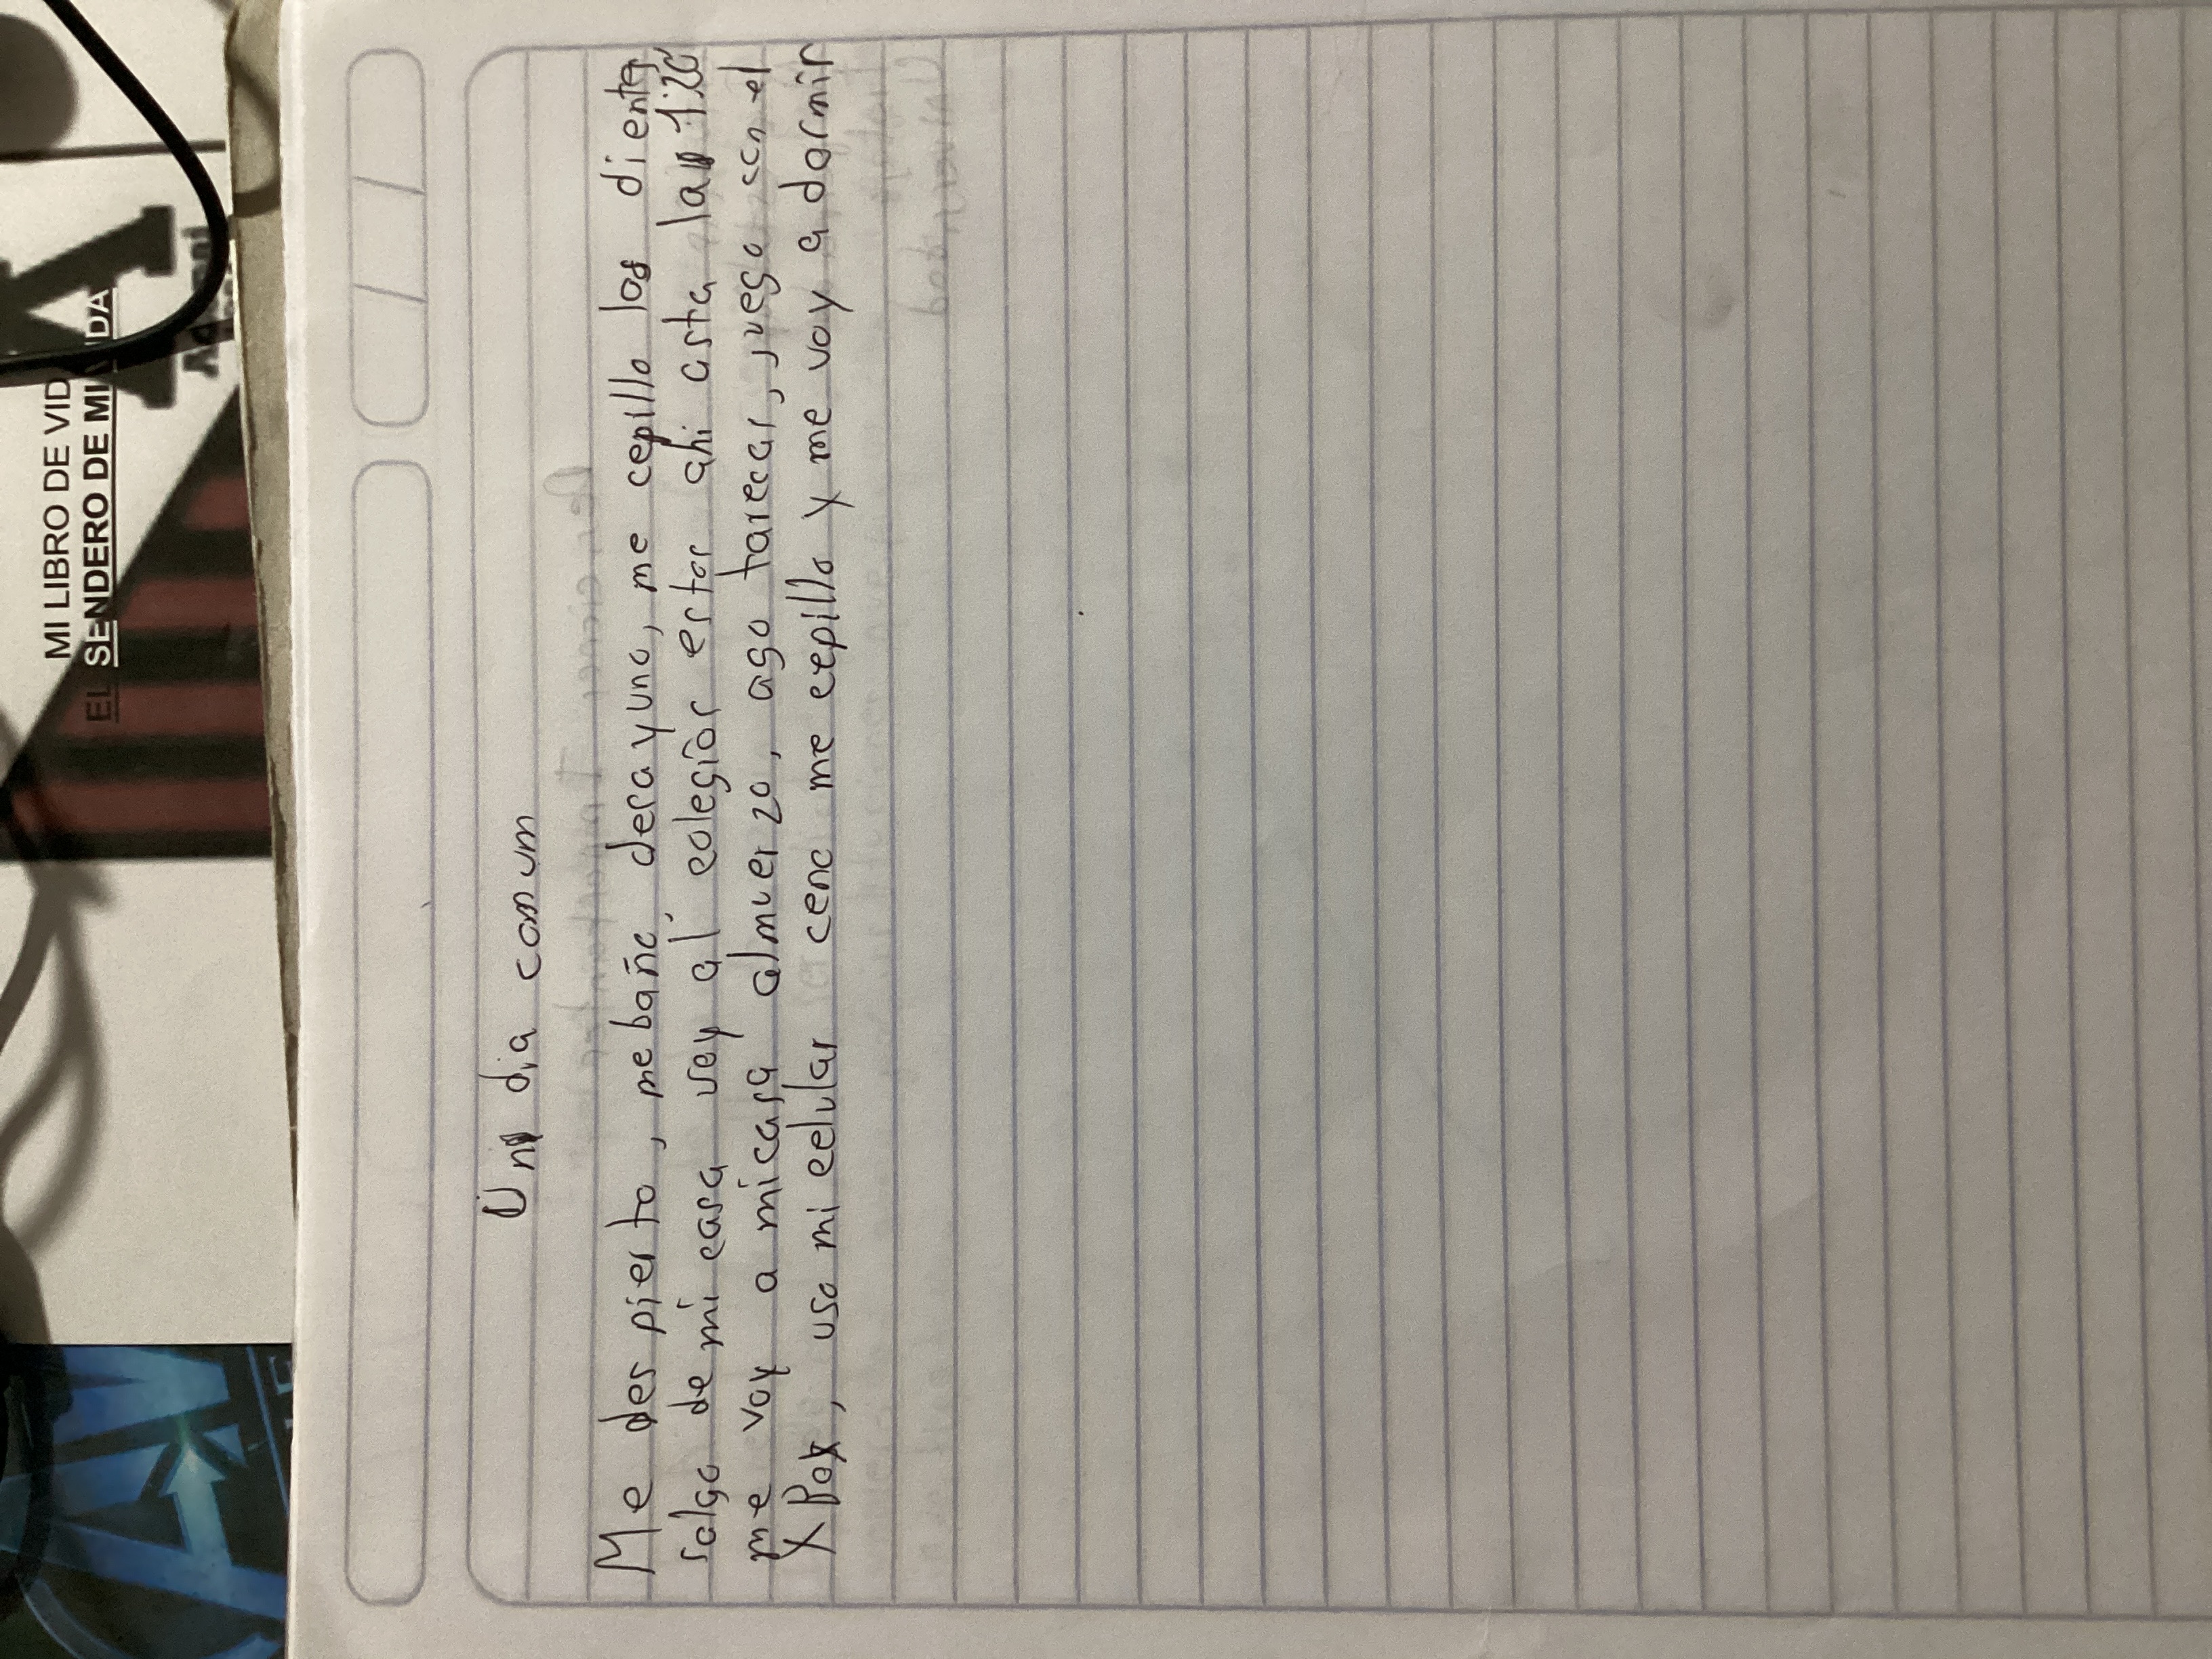 MI LIBRO DE VID
EL SENDERO DE MI VIDA
Un dia comum
Me des pierto, me baño, desayuno, me cepillo los dientes,
salgo de mi casa voy al colegior estar ahi asta las 1:20
me voy a mi casa almuerzo, ago tareas, juego con el
X Box, uso mi celular ceno me cepillo y me voy a dormir